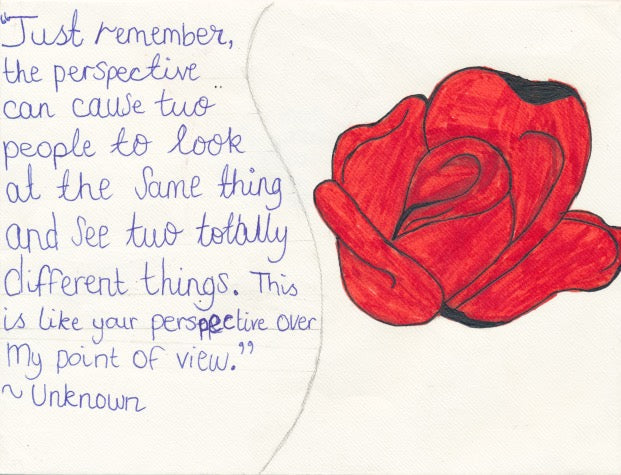 "Just remember,
the perspective
can cause two
people to look
at the same thing
and see two totally
different things. This
is like your perspective over
my point of view."
~ Unknown